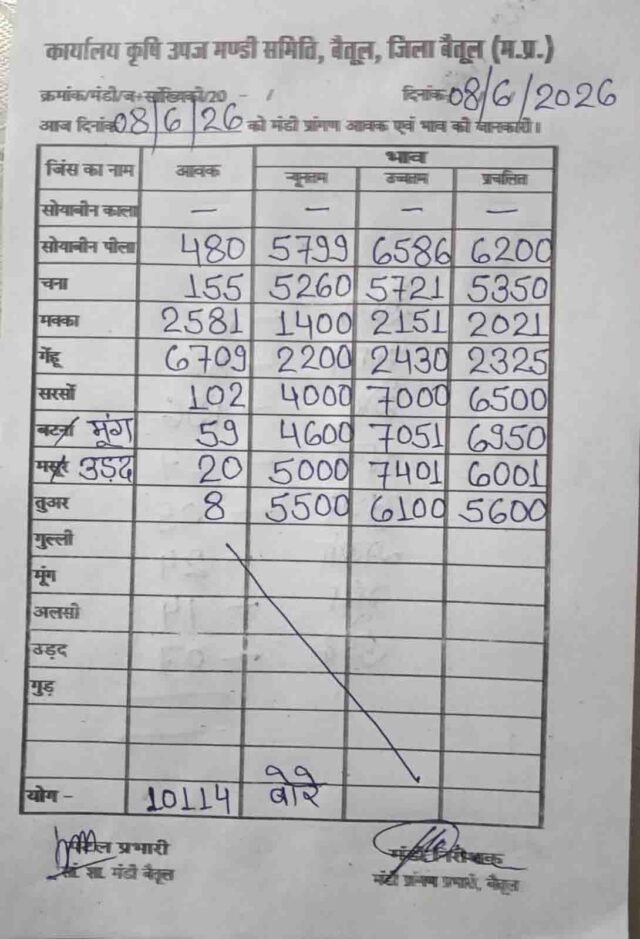 कार्यालय कृषि उपज मण्डी समिति, बैतूल, जिला बैतूल (म.प्र.)
क्रमांक/मंडी/ज+सांख्यिकी/20 - /
दिनांक 08/6/2026
आज दिनांक 08/6/26 को मंडी प्रांगण आवक एवं भाव की जानकारी।
जिंस का नाम आवक भाव
न्यूनतम उच्चतम प्रचलित
सोयाबीन काला — — — —
सोयाबीन पीला 480 5799 6586 6200
चना 155 5260 5721 5350
मक्का 2581 1400 2151 2021
गेंहू 6709 2200 2430 2325
सरसों 102 4000 7000 6500
बटना मूंग 59 4600 7051 6950
मसूर उड़द 20 5000 7401 6001
तुअर 8 5500 6100 5600
गुल्ली
मूंग
अलसी
उड़द
गुड़
योग - 10114 बोरे
प्रभारी मंडी निरीक्षक
सां. शा. मंडी बैतूल मंडी प्रांगण प्रभारी, बैतूल